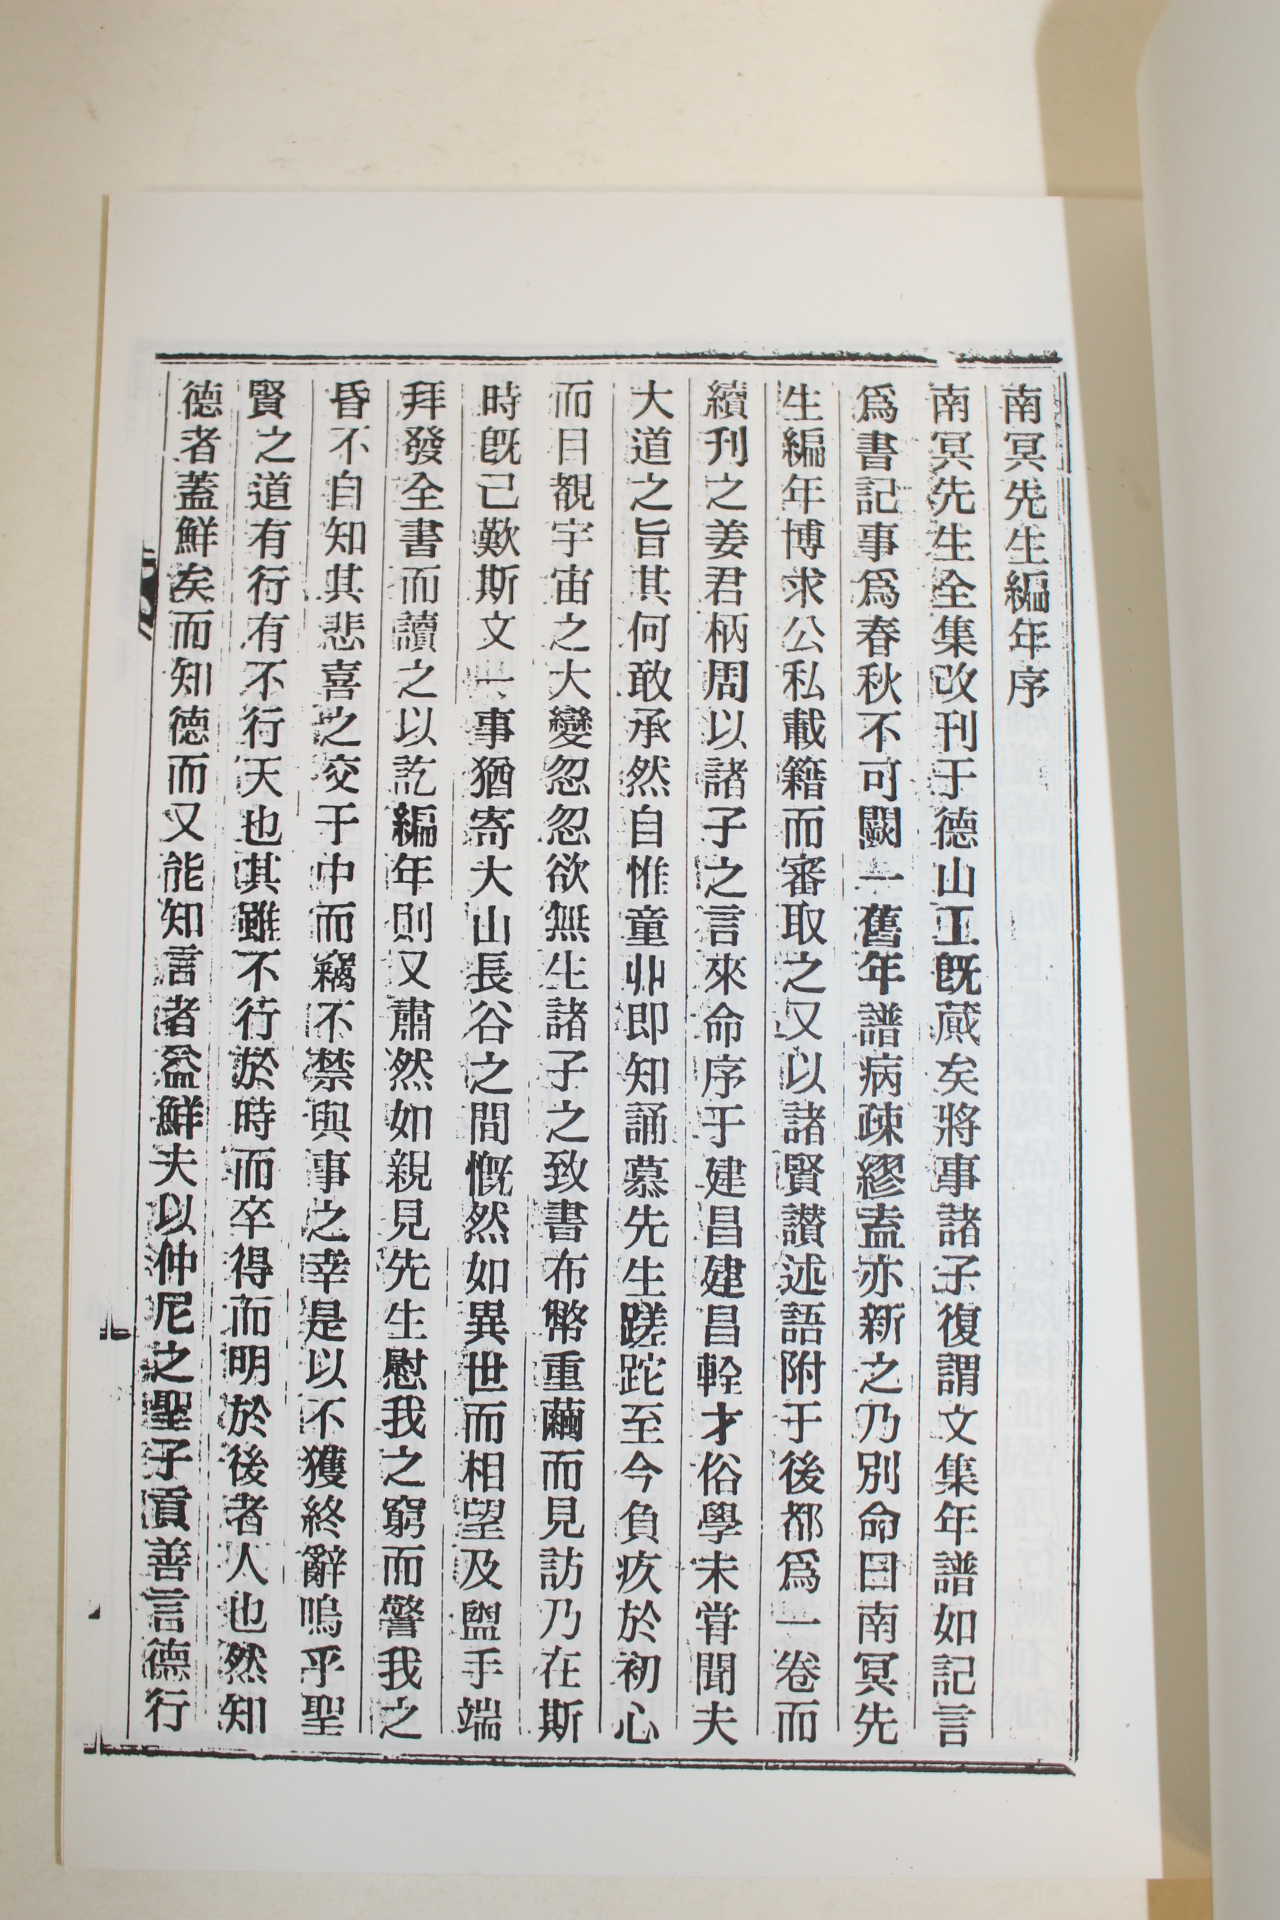 南冥先生編年序
南冥先生全集改刊于德山工旣蕆矣將事諸子復謂文集年譜如記言
爲書記事爲春秋不可闕一舊年譜病疎繆盍亦新之乃別命曰南冥先
生編年博求公私載籍而審取之又以諸賢讚述語附于後都爲一卷而
續刊之姜君柄周以諸子之言來命序于建昌建昌輇才俗學未嘗聞夫
大道之旨其何敢承然自惟童丱即知誦慕先生蹉跎至今負疚於初心
而目覩宇宙之大變忽忽欲無生諸子之致書布幣重繭而見訪乃在斯
時旣已歎斯文一事猶寄大山長谷之間慨然如異世而相望及盥手端
拜發全書而讀之以訖編年則又肅然如親見先生慰我之窮而警我之
昏不自知其悲喜之交于中而竊不禁與事之幸是以不獲終辭嗚乎聖
賢之道有行有不行天也其雖不行於時而卒得而明於後者人也然知
德者蓋鮮矣而知德而又能知言者益鮮夫以仲尼之聖子貢善言德行